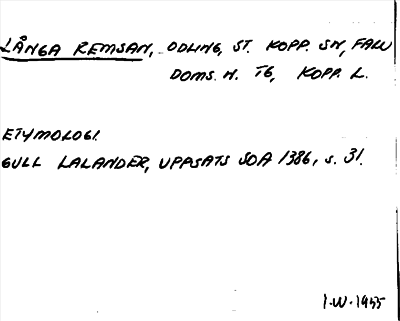 LÅNGA REMSAN, ODLING, ST. KOPP. SN, FALU
DOMS. H. TG, KOPP. L.
ETYMOLOGI.
GULL LALANDER, UPPSATS SOA 1386, s. 31.
I.W. 1955